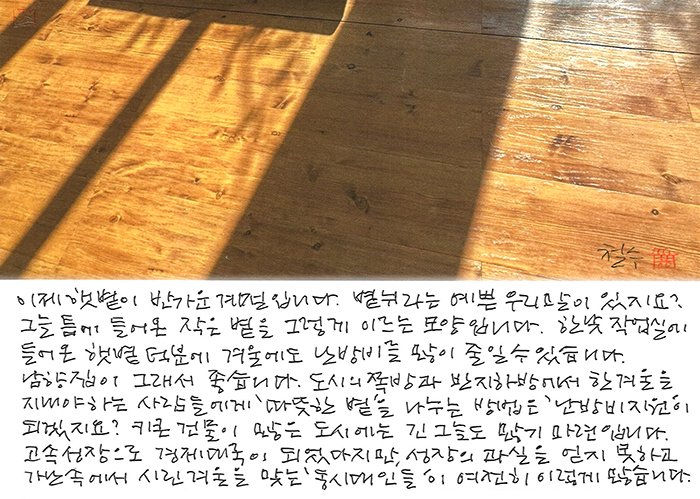 철수
이제 햇볕이 반가운 계절입니다. 볕뉘라는 예쁜 우리말이 있지요?
그늘 틈에 들어온 작은 볕을 그렇게 이르는 모양입니다. 한낮 작업실에
들어온 햇볕 덕분에 겨울에도 난방비를 많이 줄일 수 있습니다.
남향집이 그래서 좋습니다. 도시의 쪽방과 반지하방에서 한겨울을
지내야 하는 사람들에게 '따뜻한 볕'을 나누는 방법은 '난방비지원'이
되겠지요? 키 큰 건물이 많은 도시에는 긴 그늘도 많기 마련입니다.
고속성장으로 경제대국이 되었다지만, 성장의 과실을 얻지 못하고
가난 속에서 시린 겨울을 맞는 '동시대인들'이 여전히 이렇게 많습니다.